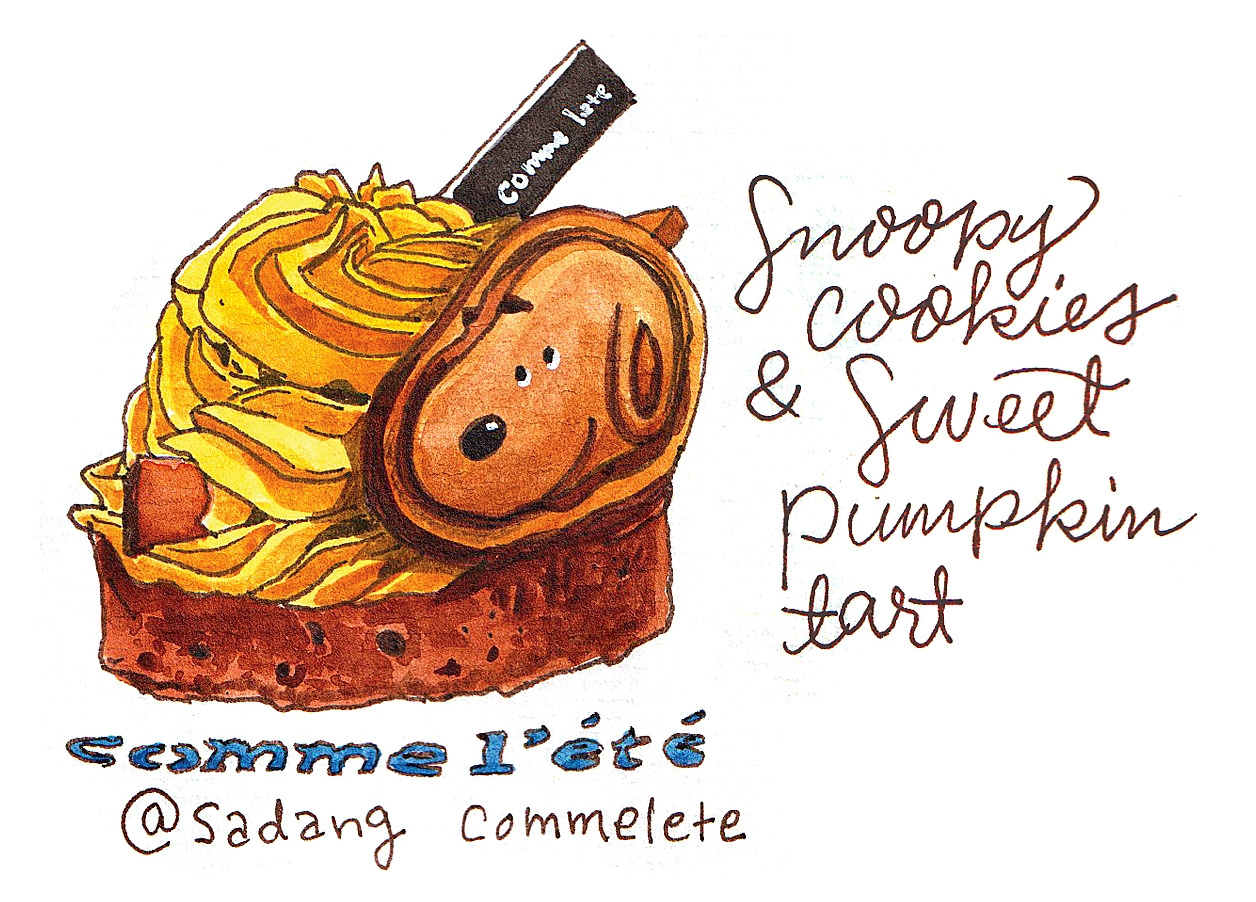 comme late
Snoopy
cookies
& Sweet
pumpkin
tart
comme l'été
@Sadang commelete